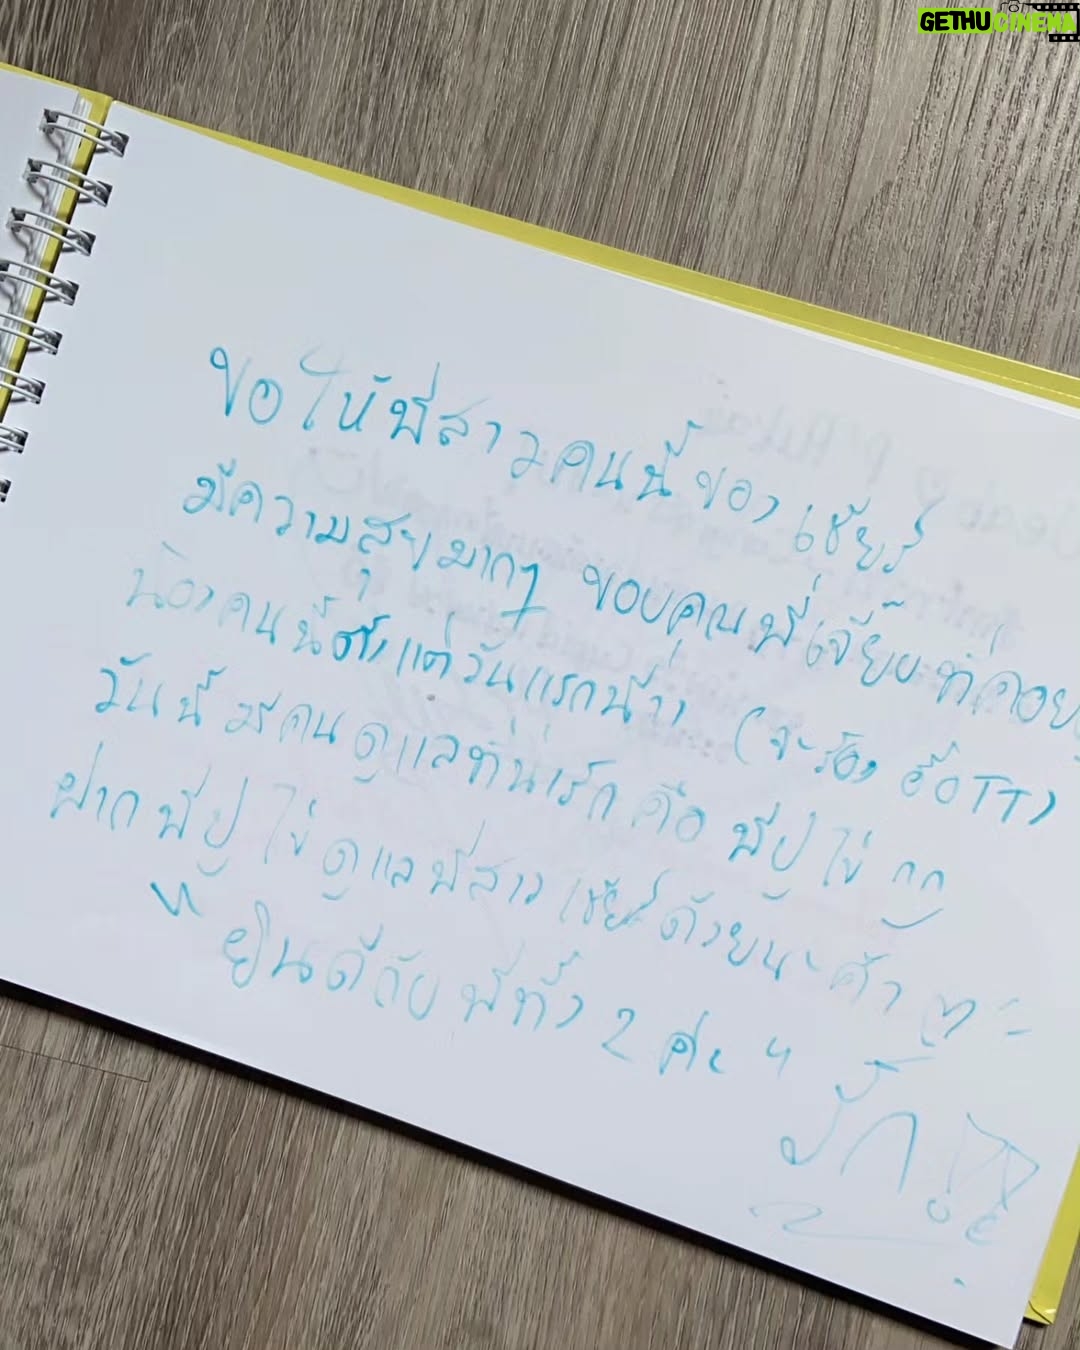 GETHUCINEMA
ขอให้พี่สาวคนนี้ของเชียร์
มีความสุขมากๆ ขอบคุณพี่เจี๊ยบที่คอย
น้องคนนี้ตั้งแต่วันแรกน้าา (จะร้อง ฮื้อTT)
วันนี้มีคนดูแลที่น่ารัก คือ พี่ปูไข่
ฝากพี่ปูไข่ดูแลพี่สาวเชียร์ด้วยนะค้า
"ยินดีกับพี่ทั้ง 2 ค่ะ"
รัก